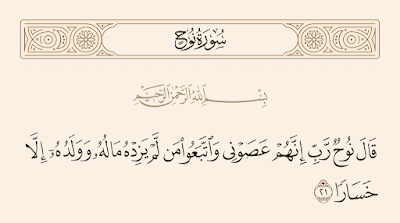 سُورَةُ نُوحٍ
بِسْمِ اللَّهِ الرَّحْمَٰنِ الرَّحِيمِ
قَالَ نُوحٌ رَّبِّ إِنَّهُمْ عَصَوْنِى وَٱتَّبَعُوا۟ مَن لَّمْ يَزِدْهُ مَالُهُۥ وَوَلَدُهُۥٓ إِلَّا
خَسَارًا ٢١